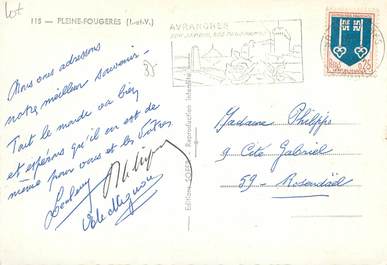 Lot
115 — PLEINE-FOUGERES (I.-et-V.)
AVRANCHES
35
0,25
Nous vous adressons
notre meilleur souvenir.
Tout le monde va bien
et espérons qu'il en est de
même pour vous et les
Reproduction interdite
Editions
Madame Philippe
9 Cité Gabriel
59 - Rosendaël